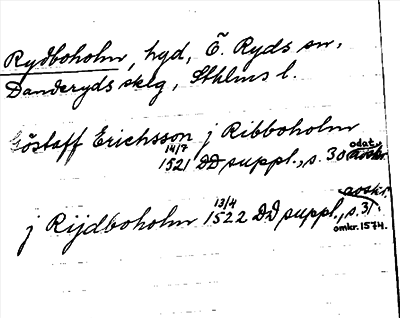 Rydboholm, hgd, Ö. Ryds sn,
Danderyds sklg, Sthlms l.
Göstaff Erichsson j Ribboholm
14/7 1521 DD suppl., s. 30 odat. avskr.
avskr.
j Rijdboholm 13/4 1522 DD suppl., s. 31
omkr. 1574.